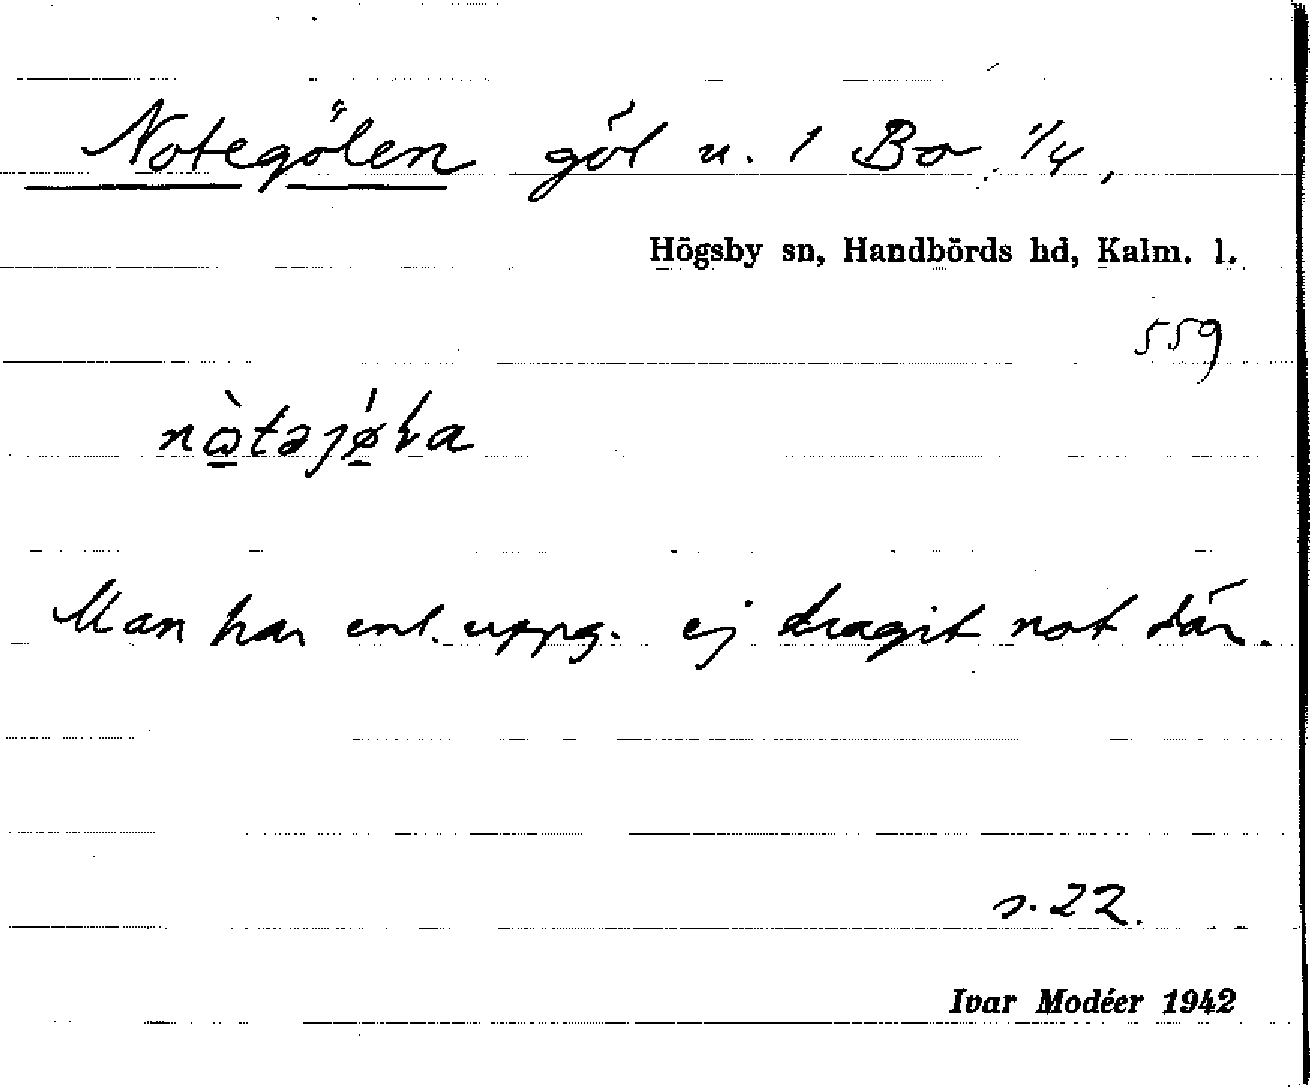 Notegölen göl u. 1 Bo 1/4,
Högsby sn, Handbörds hd, Kalm. l.
559
Man har enl. uppg. ej dragit not där.
s. 22.
Ivar Modéer 1942